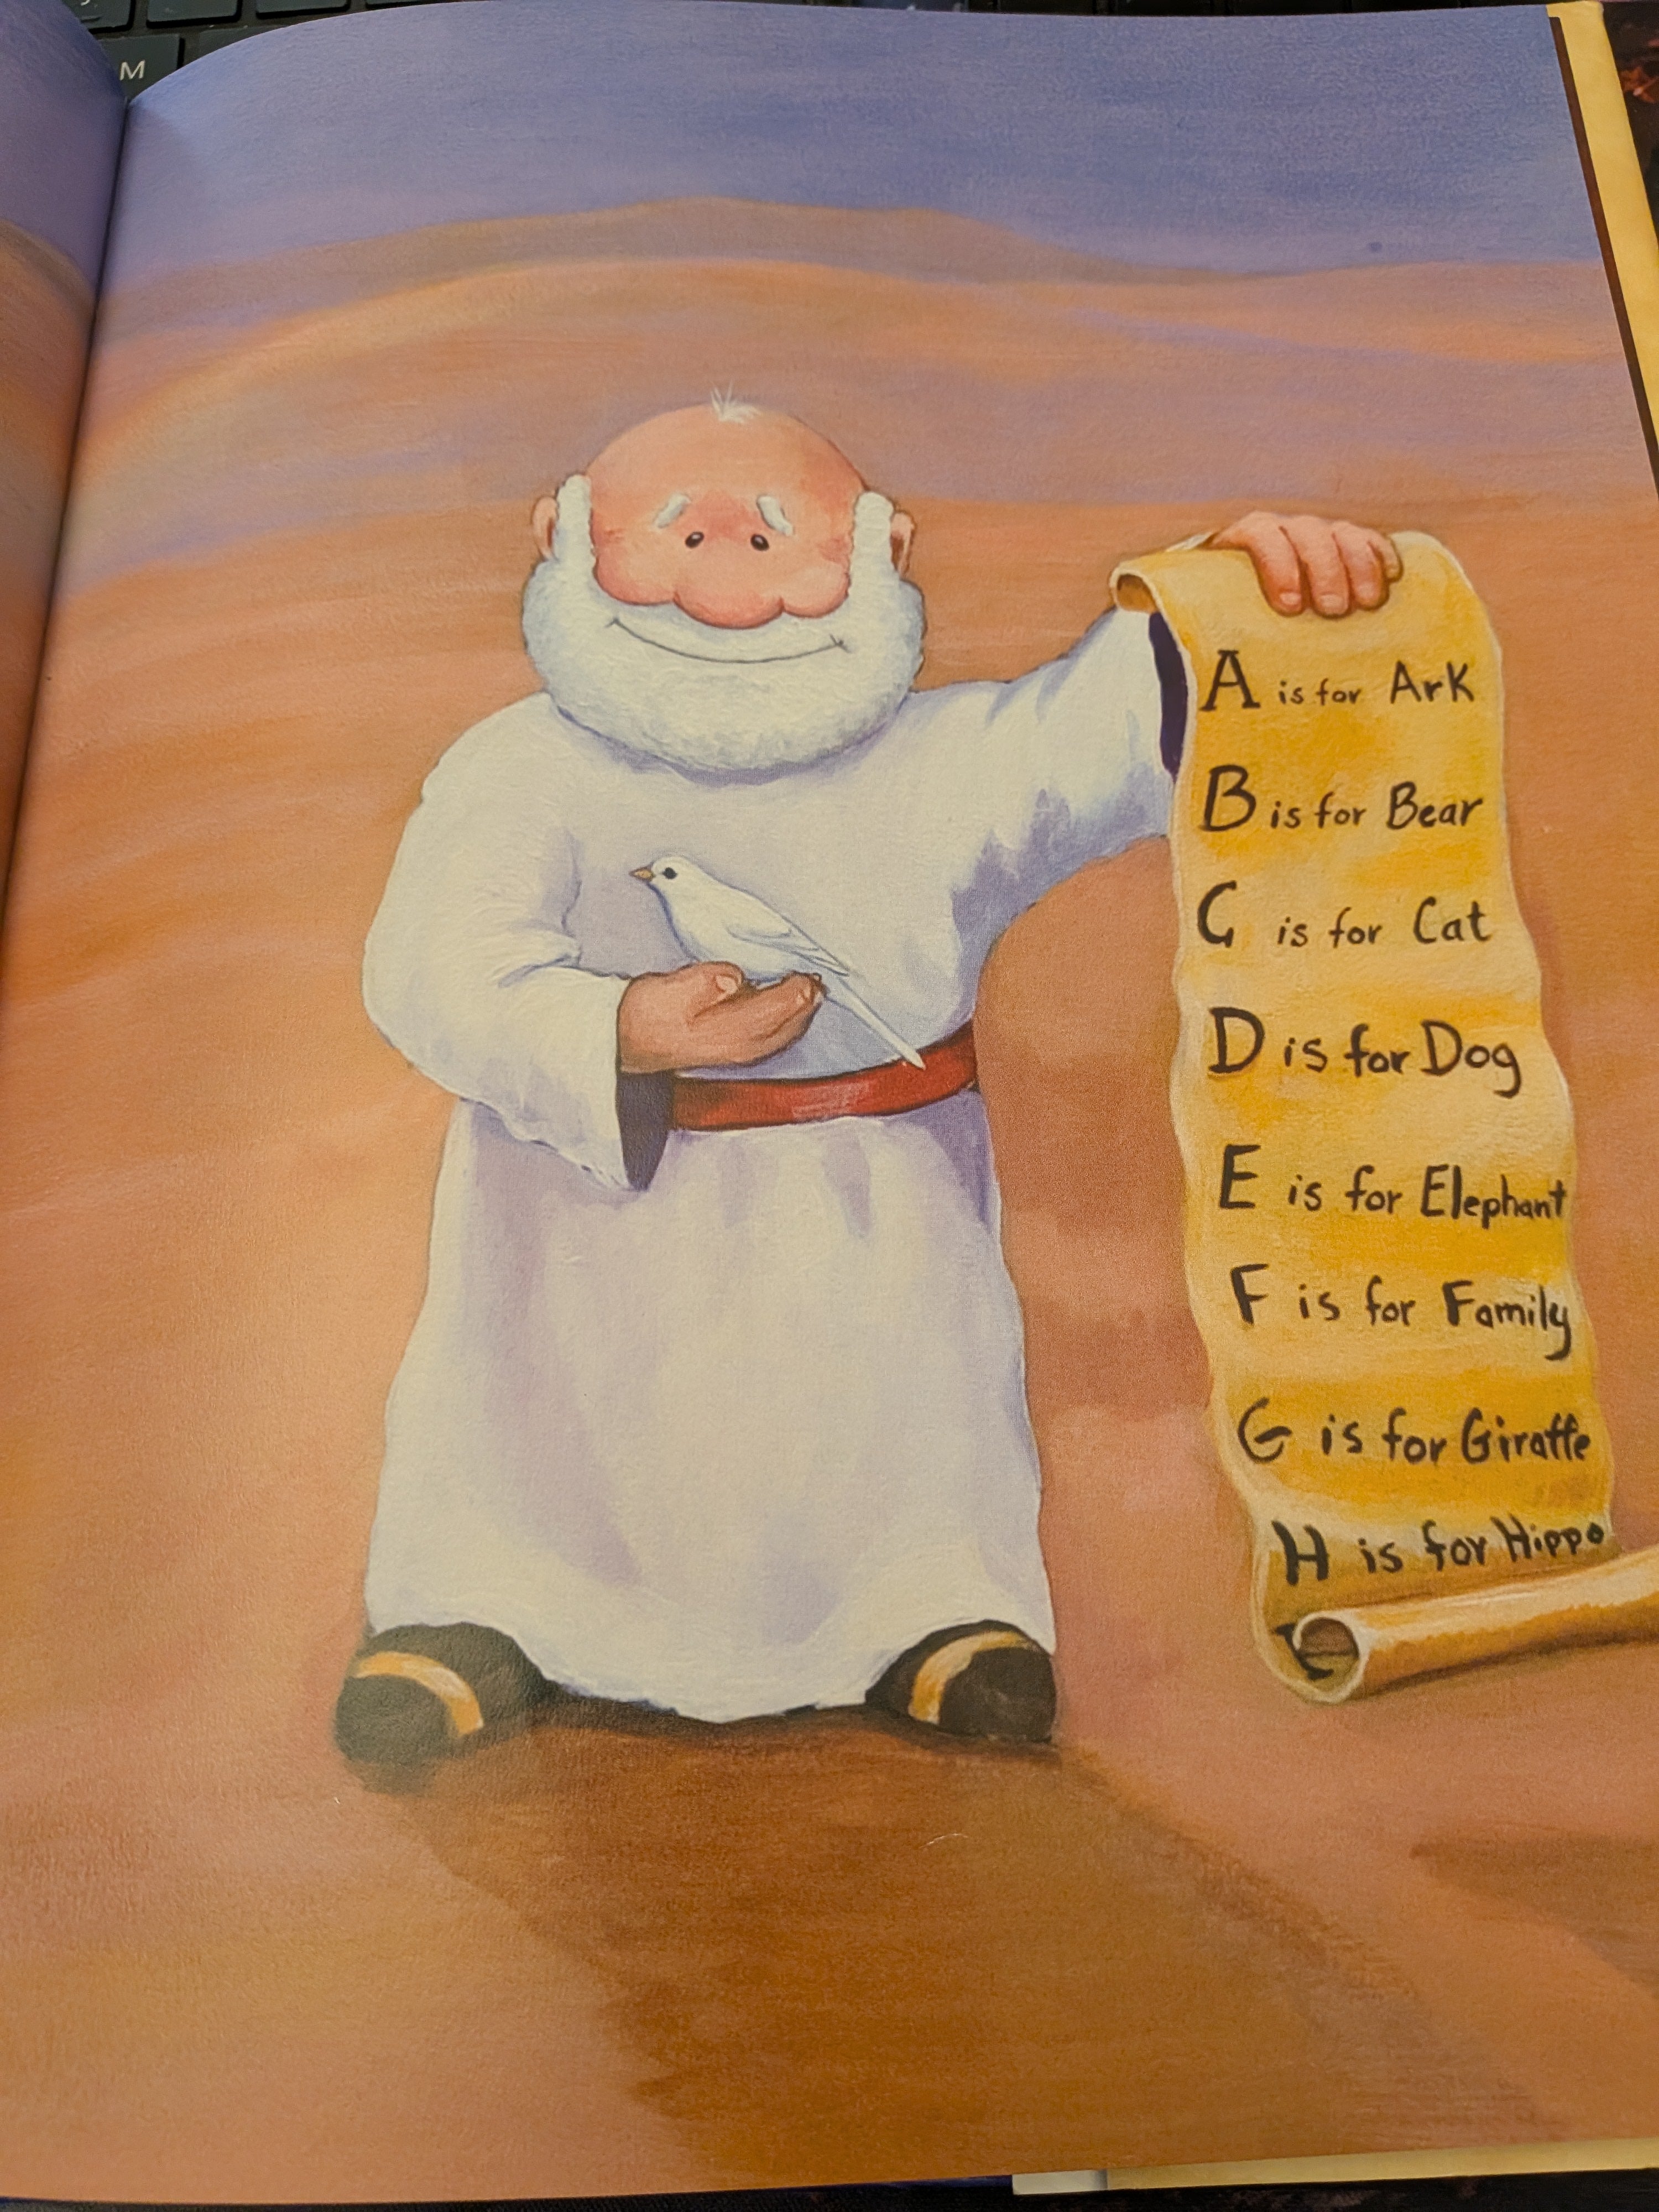 M
A is for Ark
B is for Bear
C is for Cat
D is for Dog
E is for Elephant
F is for Family
G is for Giraffe
H is for Hippo